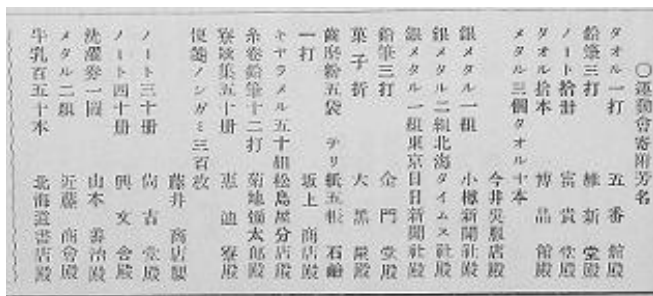 〇運動會寄附芳名
タオル一打　五番館殿
鉛筆三打　維新堂殿
ノート拾册　富貴堂殿
タオル拾本　博品館殿
メタル三個タオル十本
今井呉服店殿
銀メタル一組　小樽新聞社殿
銀メタル二組北海タイムス社殿
銀メタル一組東京日日新聞社殿
鉛筆三打　金門堂殿
菓子折　大黑屋殿
齒磨粉五袋　チリ紙五帖　石鹼
一打　坂上商店殿
キヤラメル五十組松島屋分店殿
糸卷鉛筆十二打　菊地彌太郎殿
寮歌集五十册　惠迪寮殿
便箋ノシガミ三百枚
藤井商店殿
ノート三十册　尙古堂殿
ノート四十册　興文舍殿
洗濯劵一圓　山本善治殿
メタル二組　近藤商會殿
牛乳百五十本　北海道書店殿